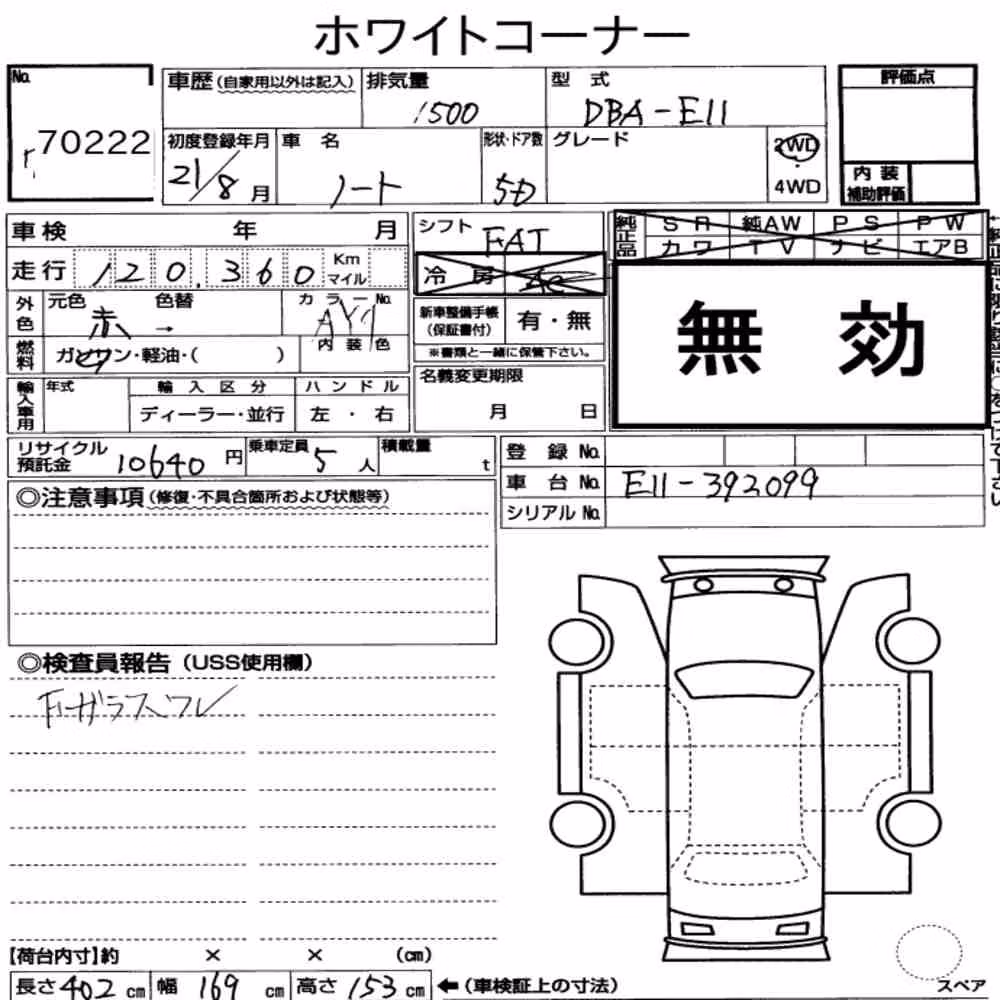 ホワイトコーナー
No. 70222
車歴(自家用以外は記入) 排気量 1500 型式 DBA-E11 評価点
初度登録年月 21/8月 車名 ノート 形状・ドア数 5D グレード 2WD 4WD
内装補助評価
車検 年 月 シフト FAT 純正品 SR 純AW PS PW
カワ TV ナビ エアB
走行 120.360 Km マイル 冷房 AC
外色 元色 赤 色替 → カラーNo. 新車整備手帳(保証書付) 有・無
無効
燃料 ガソリン・軽油・( ) 内装色 ※書類と一緒に保管下さい。
輸入車用 年式 輸入区分 ハンドル 名義変更期限
ディーラー・並行 左・右 月 日
リサイクル預託金 10640円 乗車定員 5人 積載量 t 登録No.
車台No. E11-392099
シリアルNo.
◎注意事項(修復・不具合箇所および状態等)
◎検査員報告(USS使用欄)
Fガラスワレ
【荷台内寸】約 × × (cm)
長さ402cm 幅169cm 高さ153cm ←(車検証上の寸法) スペア